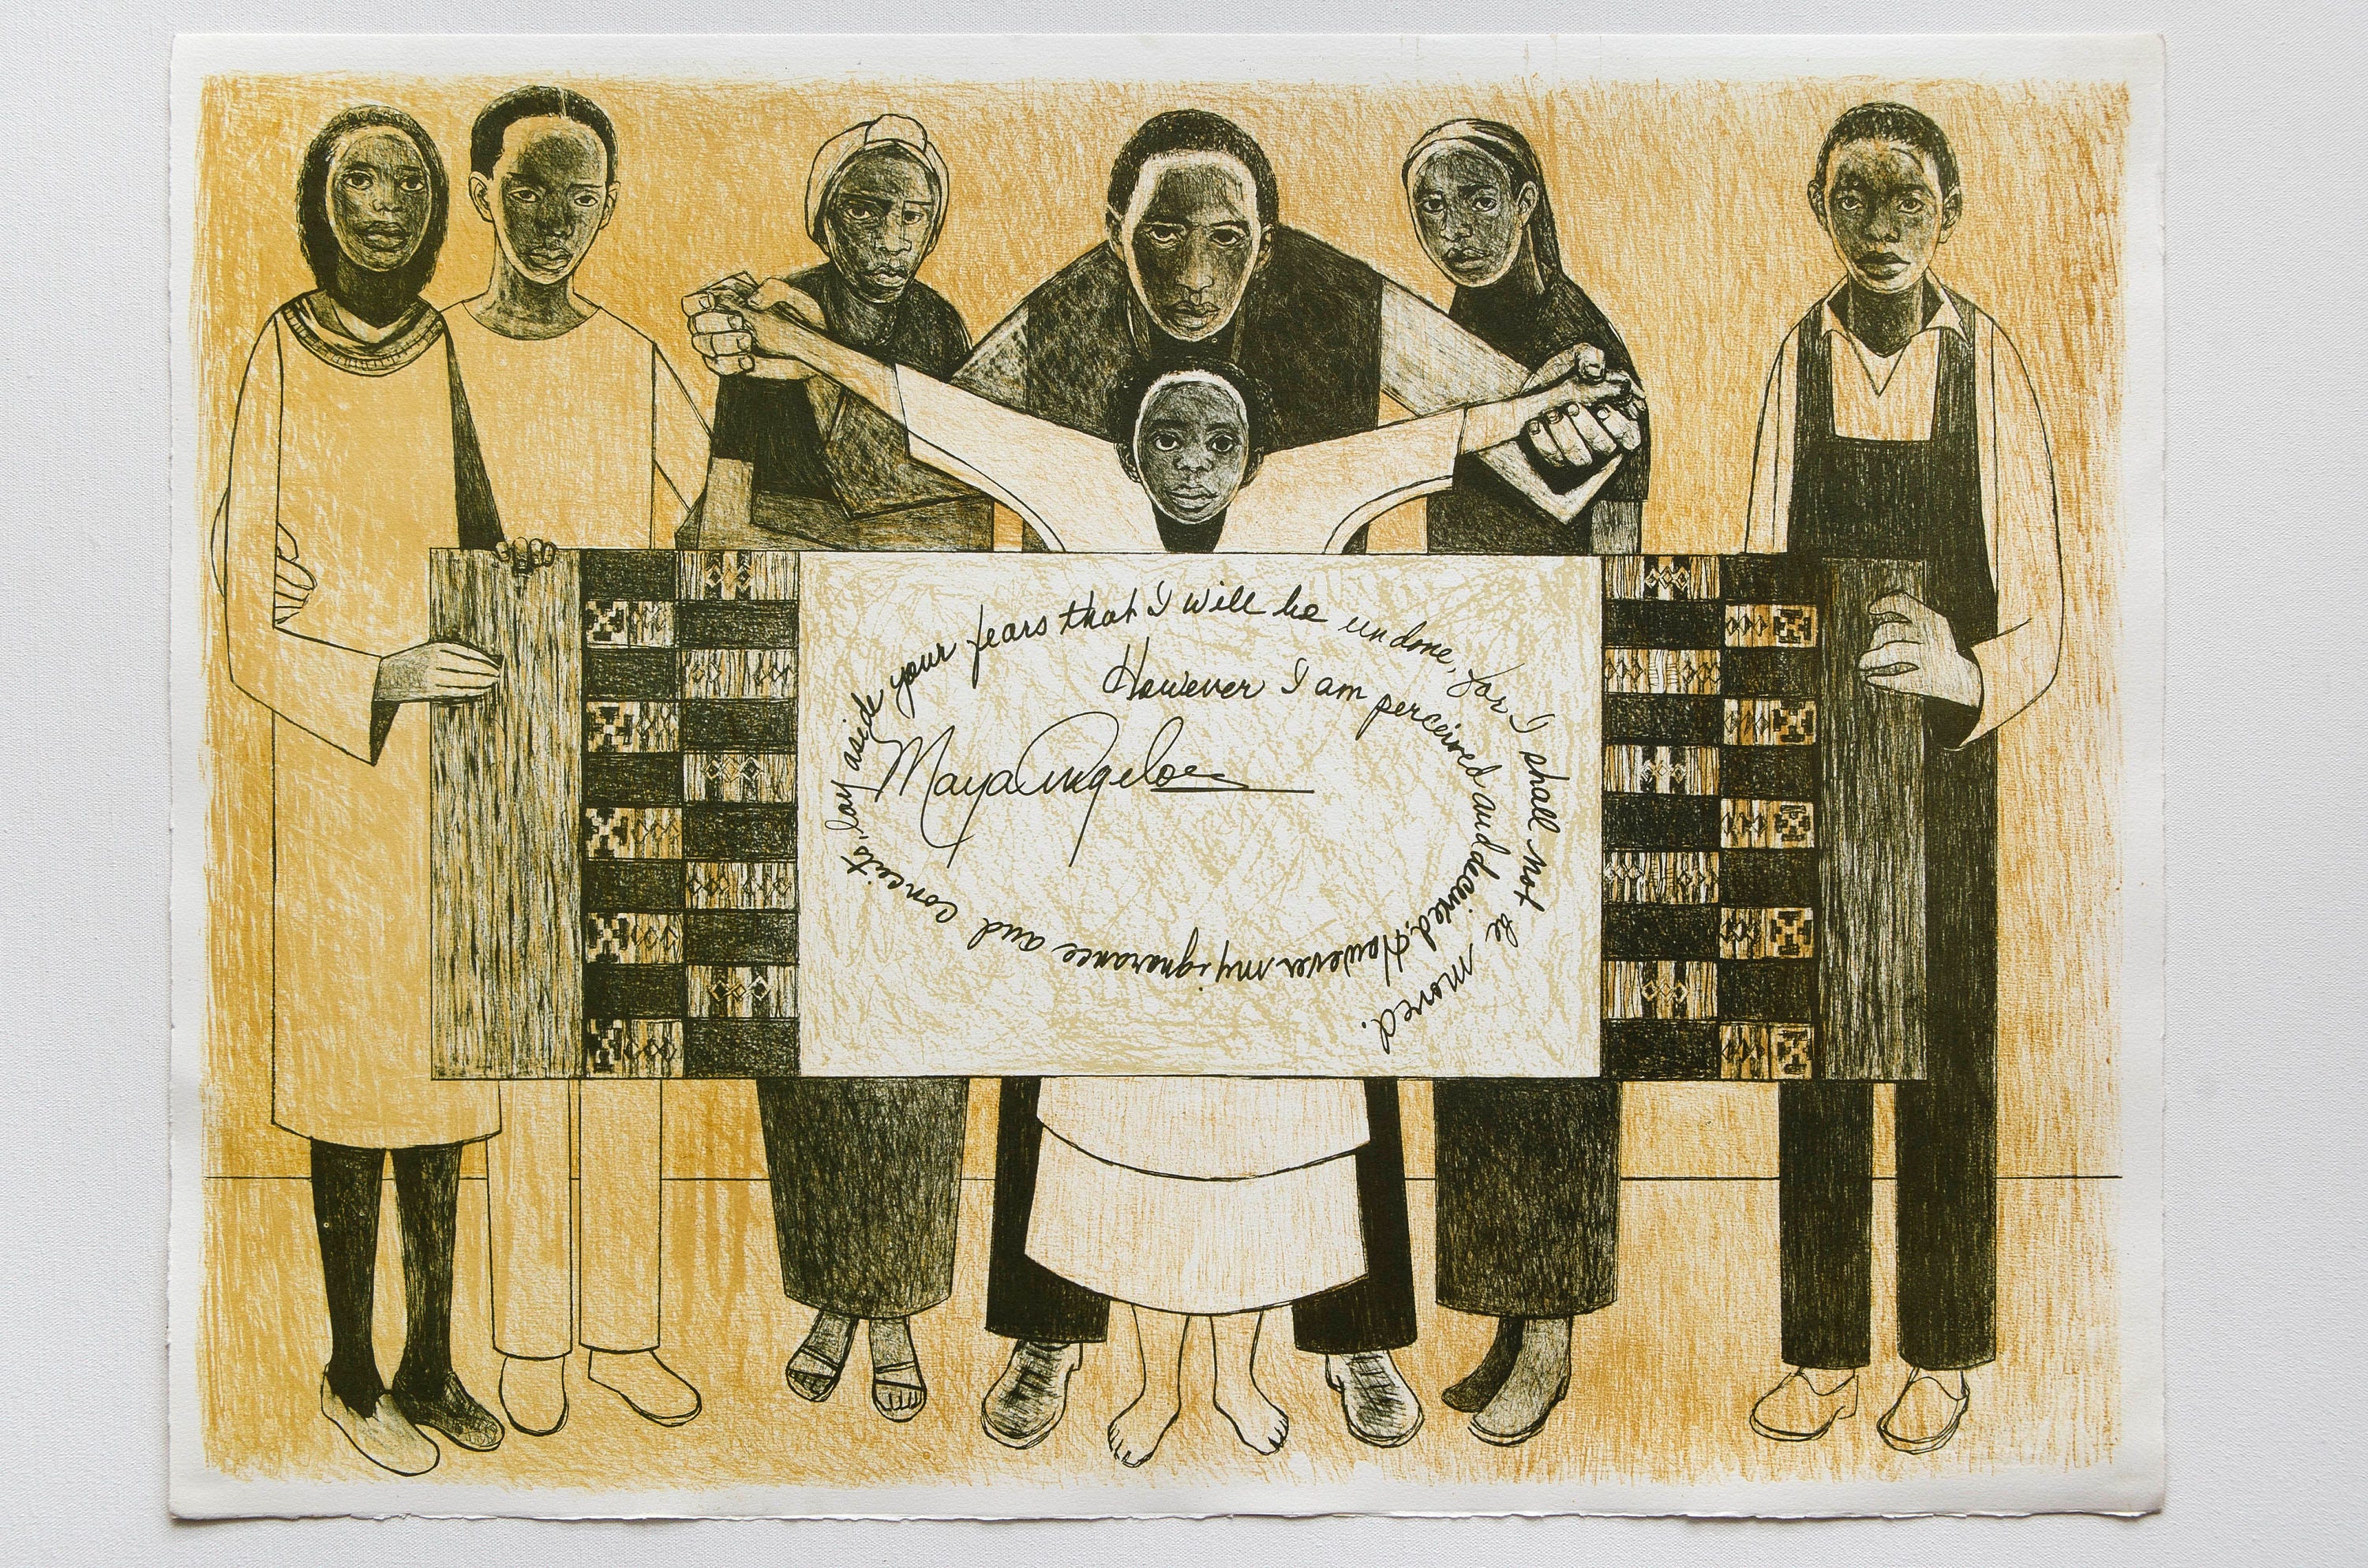 However I am perceived and deceived. However my ignorance and conceits, lay aside your fears that I will be undone, for I shall not be moved.
Maya Angelou